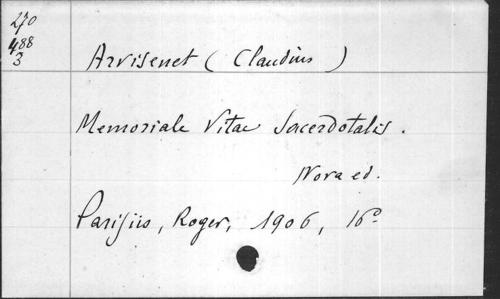 270
488
3
Arvisenet ( Claudius )
Memoriale Vitae Sacerdotalis.
Nova ed.
Parisiis, Roger, 1906, 16°